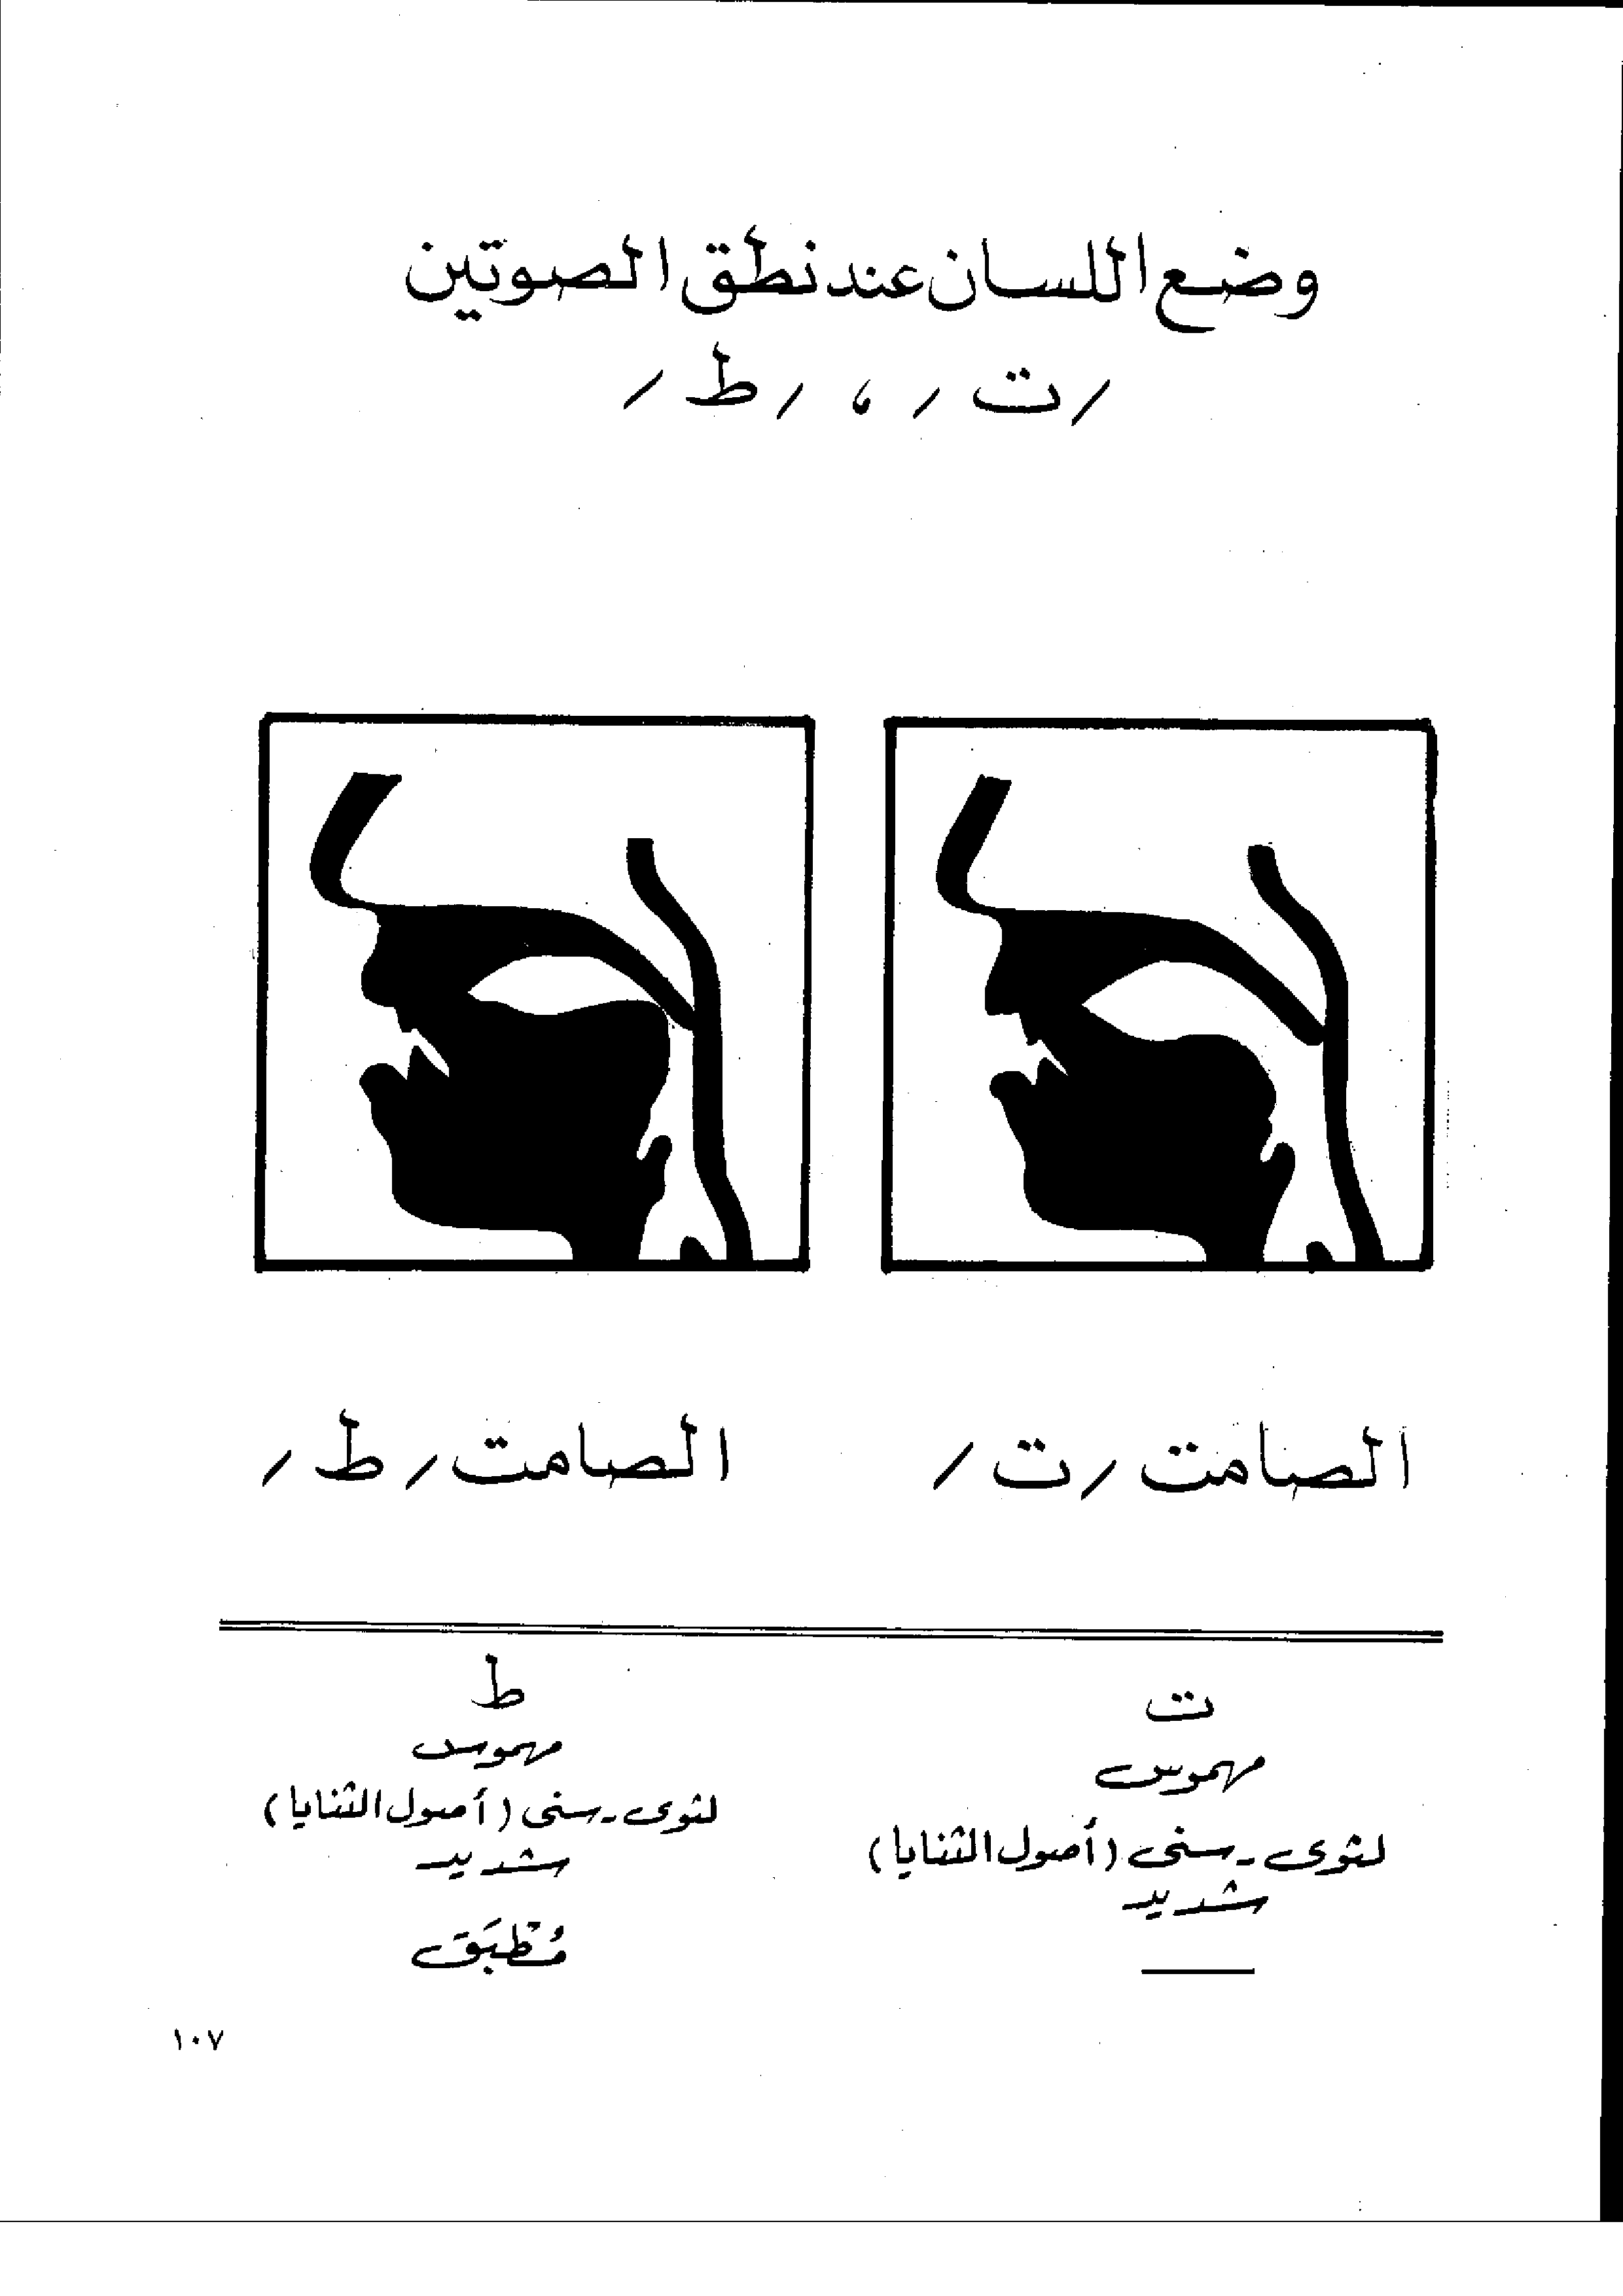 وضع اللسان عند نطق الصوتين
/ ت / ، / ط /
الصامت / ت /
الصامت / ط /
ت
مهموس
لثوى - سنى (أصول الثنايا)
شديد
ط
مهموس
لثوى - سنى (أصول الثنايا)
شديد
مُطْبَق
١٠٧